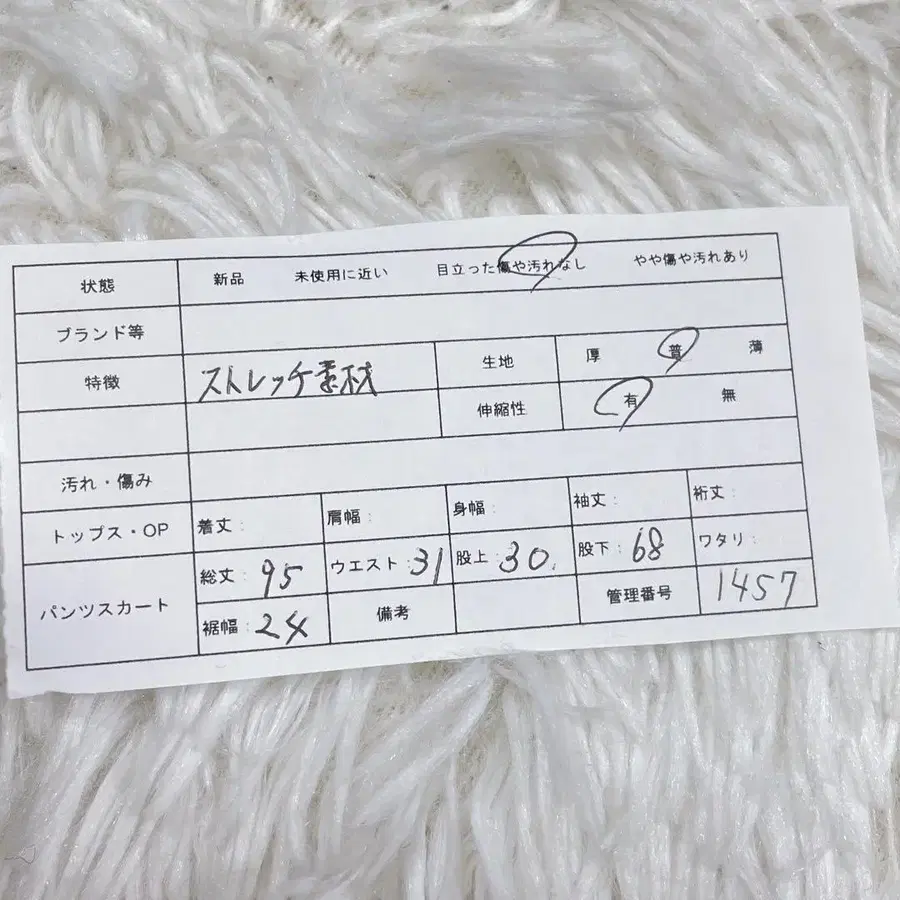 状態 新品 未使用に近い 目立った傷や汚れなし やや傷や汚れあり
ブランド等
特徴 ストレッチ素材 生地 厚 普 薄
伸縮性 有 無
汚れ・傷み
トップス・OP 着丈: 肩幅: 身幅: 袖丈: 裄丈:
パンツスカート 総丈: 95 ウエスト: 31 股上: 30. 股下: 68 ワタリ:
裾幅: 24 備考 管理番号 1457